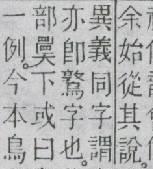 余始從其說
異義同字謂
亦卽鷔字也。
部㚖下或曰
一例。今本鳥